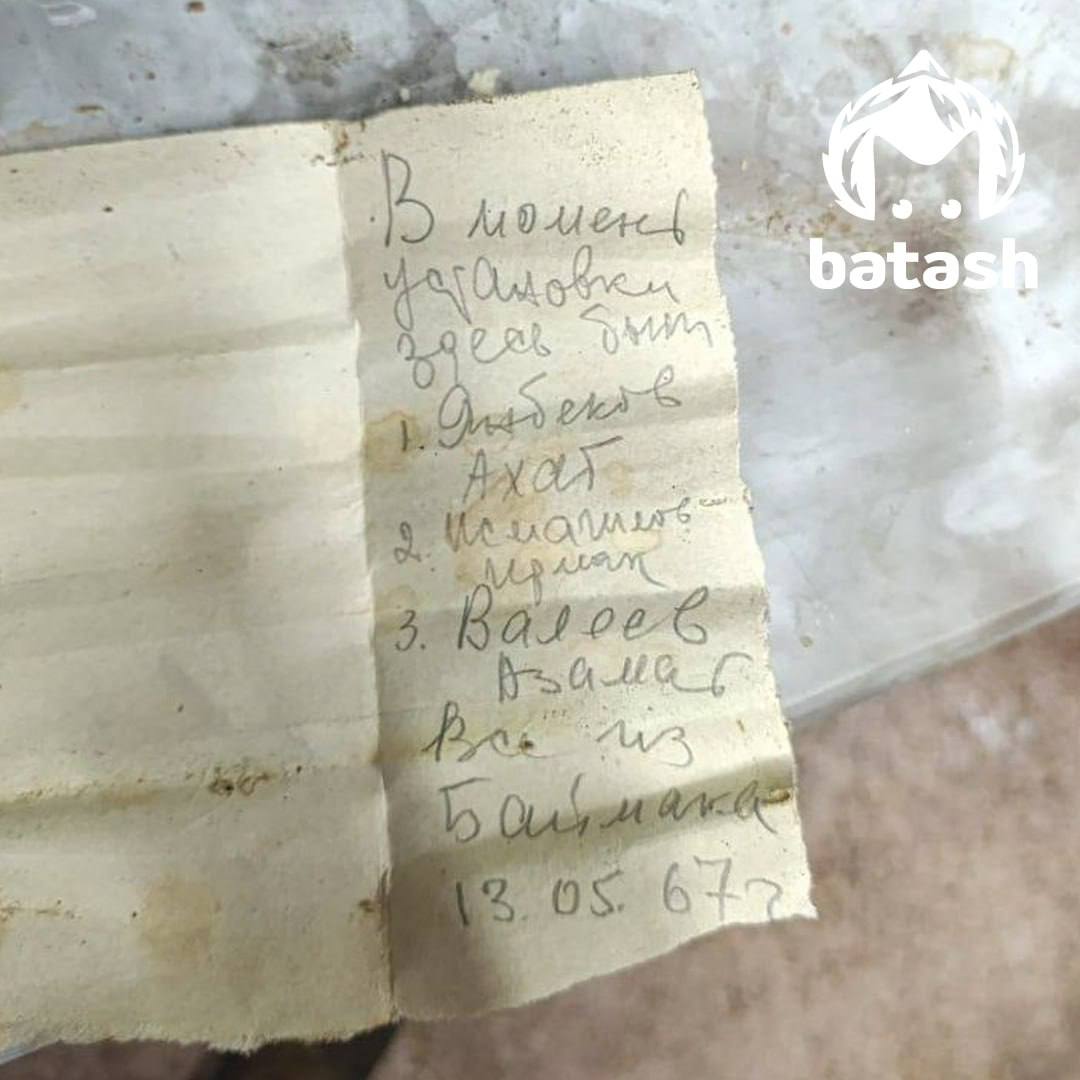 В момент
установки
здесь были
1. Янбеков
Ахат
2. Исмагилов
3. Валеев
Азамат
Все из
Баймака
13.05.67г
batash